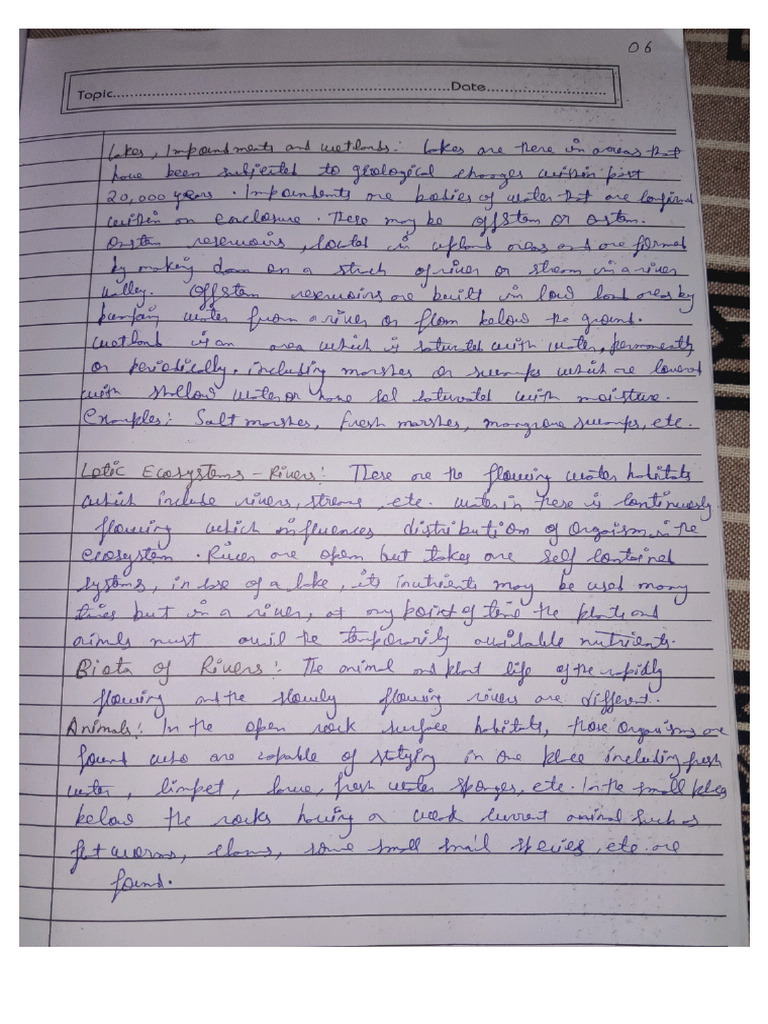 06
Topic..........Date..........
Lakes, Impoundments and wetlands: Lakes are there in areas that
have been subjected to geological changes within past
20,000 years. Impondents are bodies of water that are confined
within an enclosure. These may be offstem or onstem.
Onstem reservoirs, located in upland areas and are formed
by making dam on a stretch of river or stream in a river
valley. Offstem reservoirs are built in low land areas by
pumping water from a river or from below the ground.
wetland is an area which is saturated with water, permanently
or periodically, including marshes or swamps which are covered
with shallow water or have soil saturated with moisture.
Examples: Salt marshes, fresh marshes, mangrove swamps, etc.
Lotic Ecosystems - Rivers: These are the flowing water habitats
which include rivers, streams, etc. water in these is continuously
flowing which influences distribution of organisms in the
ecosystem. Rivers are open but lakes are self contained
systems, in case of a lake, its nutrients may be used many
times but in a river, at any point of time the plants and
animals must avail the temporarily available nutrients.
Biota of Rivers: The animal and plant life of the rapidly
flowing and the slowly flowing rivers are different.
Animals: In the open rock surface habitats, those organisms are
found who are capable of staying in one place including fresh
water, limpet, larvae, fresh water sponges, etc. In the small places
below the rocks having a weak current animal such as
flat worms, clams, some small snail species, etc. are
found.